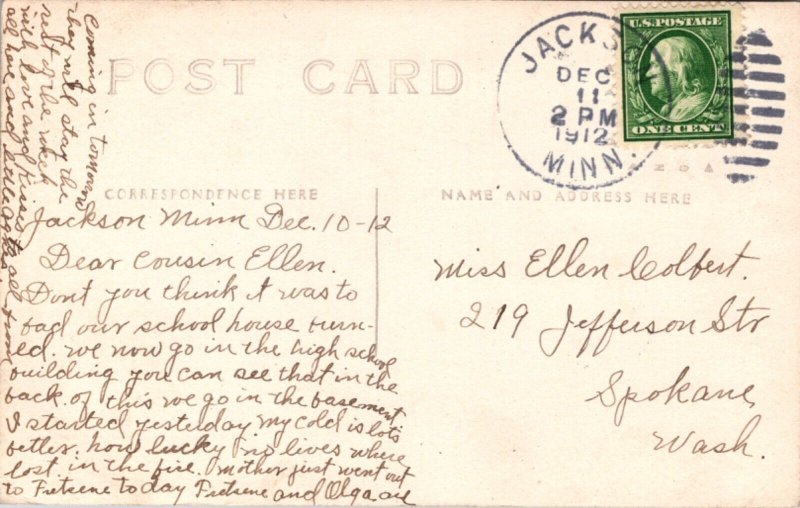 POST CARD
JACKSON
DEC
11
2 PM
1912
MINN.
U.S. POSTAGE
ONE CENT
CORRESPONDENCE HERE
NAME AND ADDRESS HERE
Jackson Minn Dec. 10-12
Dear Cousin Ellen.
Dont you think it was to
bad our school house burn-
ed. we now go in the high school
building you can see that in the
back of this we go in the basement
I started yesterday my cold is lots
better. how lucky no lives where
lost in the fire. mother just went out
to Fretsene to day Fretsene and Olga are
Coming in tomorrow
they will stay the
rest of the week
with love and kisses to all from
all love and little Agnes
Miss Ellen Colbert.
219 Jefferson Str
Spokane
Wash.